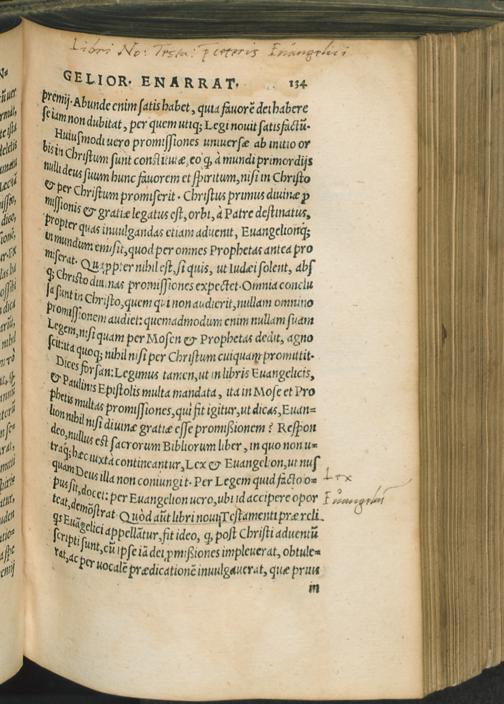 Libri No: Testa: p ceteris Euangelici
GELIOR. ENARRAT. 134
premij. Abunde enim satis habet, quia fauorē dei habere
se iam non dubitat, per quem utiq; Legi nouit satisfactū.
Huiusmodi uero promissiones uniuersæ ab initio or
bis in Christum sunt constitutæ, eo q, à mundi primordijs
nulli deus suum hunc fauorem et spiritum, nisi in Christo
& per Christum promiserit. Christus primus diuinæ p
missionis & gratiæ legatus est, orbi, à Patre destinatus,
propter quas inuulgandas etiam aduenit, Euangelionq;
in mundum emisit, quod per omnes Prophetas antea pro
miserat. Quapp̱ter nihil est, si quis, ut Iudæi solent, absq;
q; Christo diuinas promissiones expectet. Omnia conclu
sa sunt in Christo, quem qui non audierit, nullam omnino
promissionem audiet: quemadmodum enim nullam suam
Legem, nisi quam per Mosen & Prophetas dedit, agno
scit: ita quoq; nihil nisi per Christum cuiquam promittit.
Dices forsan: Legimus tamen, ut in libris Euangelicis,
& Paulinis Epistolis multa mandata, ita in Mose et Pro
phetis multas promissiones, qui fit igitur, ut dicas, Euan=
lion nihil nisi diuinæ gratiæ esse promißionem? Respon
deo, nullus est sacrorum Bibliorum liber, in quo non u=
traq; hæc iuxta contineantur, Lex & Euangelion, ut nus
quam Deus illa non coniungit. Per Legem quid facto o=
Lex
pus sit, docet: per Euangelion uero, ubi id accipere opor
Euangeliū
teat, demōstrat. Quòd aūt libri noui Testamenti præ reli
qs Euāgelici appellātur, fit ideo, q, post Christi aduentū
scripti sunt, cū ipse iā dei pmißiones impleuerat, obtule=
rat, ac per uocalē prædicationē inuulgauerat, quæ prius
in